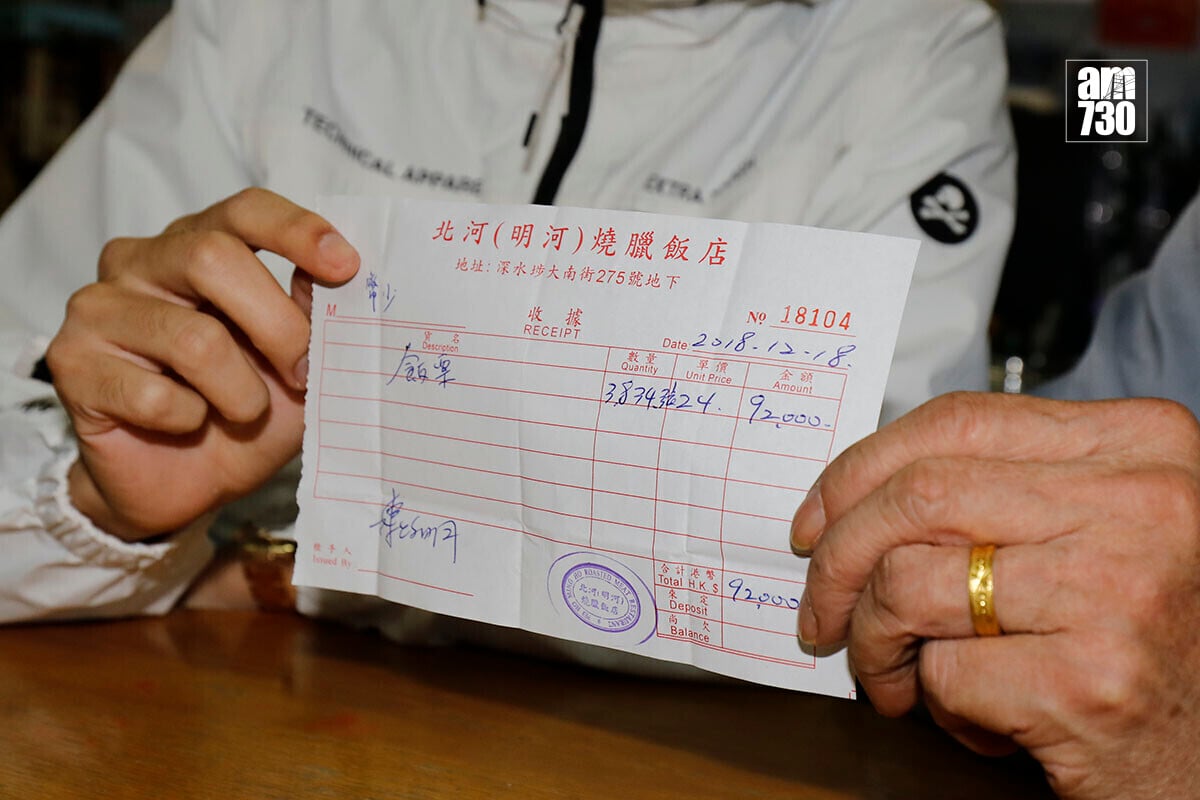 am
730
TECHNICAL APPARE
北河(明河)燒臘飯店
地址：深水埗大南街275號地下
幣少
M
收據
RECEIPT
№ 18104
Date 2018-12-18.
貨名 數量 單價 金額
Description Quantity Unit Price Amount
飯票 3,834張 24. 92,000.-
陳灼明
經手人
Issued By
MING HO ROASTED MEAT RESTAURANT
北河(明河)
燒臘飯店
合計港幣
Total H.K.$ 92,000
來定
Deposit
尚欠
Balance